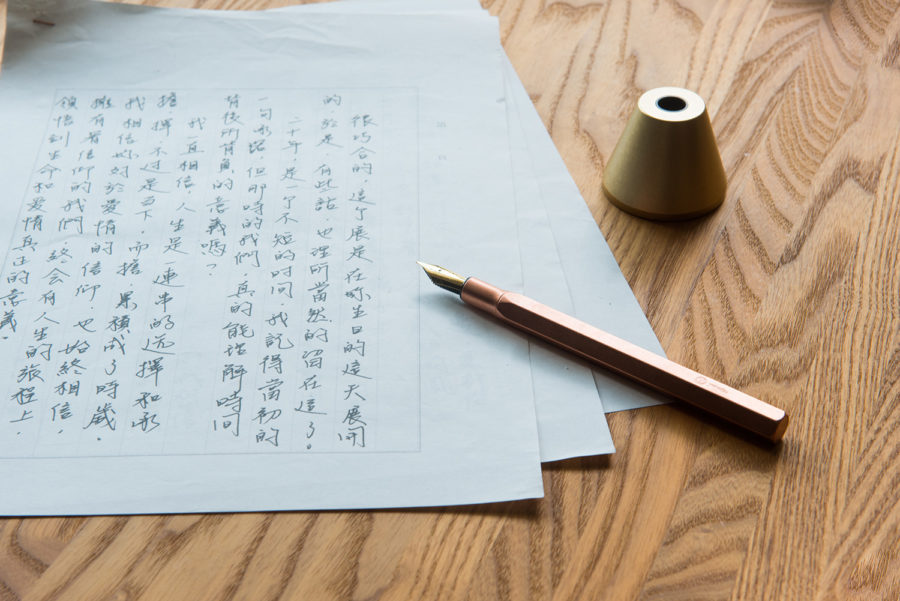 很巧合的，這个展是在妳生日的這天展開
的，於是，有些話，也理所當然的留在這了。
二十年，是一个不短的时间，我記得當初的
一句承諾，但那時的我們，真的能理解時间
背後所背負的意義嗎？
我一直相信，人生是一連串的选擇和承
擔，擇，不过是当下，而擔，累積成了時歲。
我相信妳对於愛情的信仰，也始終相信，
擁有着信仰的我們，終会有人生的旅程上，
領悟到生命和愛情真正的意義。